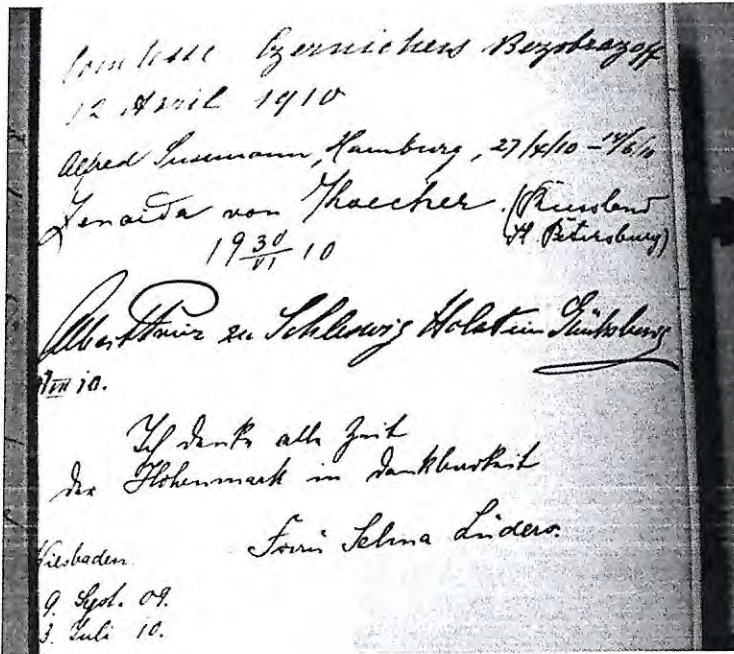 Comtesse Czernichew Bezobrazoff
12 April 1910
Alfred Susemann, Hamburg, 27/4/10 – 14/6/10
Zenaida von (Russland
St. Petersburg)
19 30/VI 10
Albert Prinz zu Schleswig Holstein Glücksburg
VII 10.
Ich denke alle Zeit
der Hohenmark in Dankbarkeit
Frau Selma Lüders.
Wiesbaden
9. Sept. 09.
3. Juli 10.